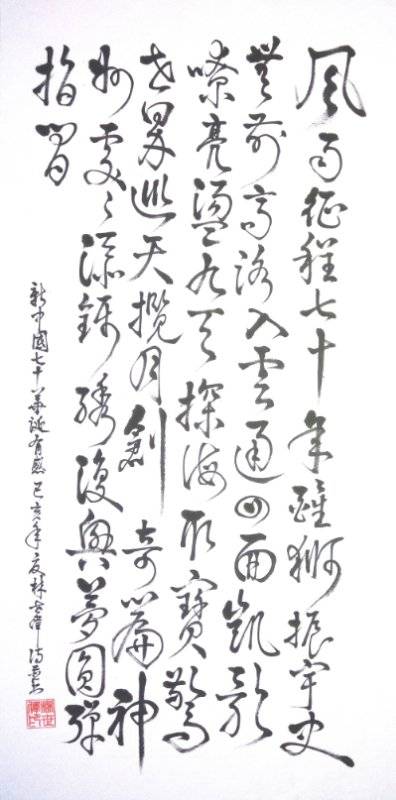 風雨征程七十年醒獅振宇史
無前高路入雲通四面凱歌
嘹亮盪九天探海取寶驚
世界巡天攬月創奇篇神
州處々添錦繡復興夢圓彈
指間
新中國七十華誕有感己亥年夏林